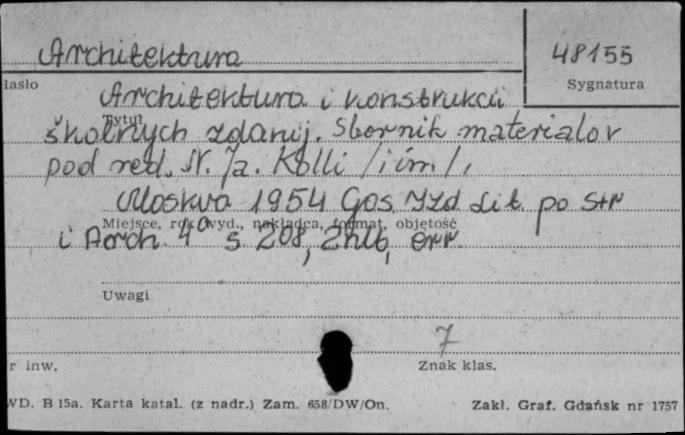 Architektura
48155
Hasło
Sygnatura
Architektura i konstrukcii
Tytuł
škol'nych zdanij. Sbornik materialov
pod red. N. Ja. Kolli /i im/,
Moskva 1954 Gos. Izd Lit. po Str
Miejsce, rok wyd., nakładca, format, objętość
i Arch. 4° s 208, 2nlb, err.
Uwagi
7
r inw.
Znak klas.
WD. B 15a. Karta katal. (z nadr.) Zam. 658/DW/On.
Zakł. Graf. Gdańsk nr 1757